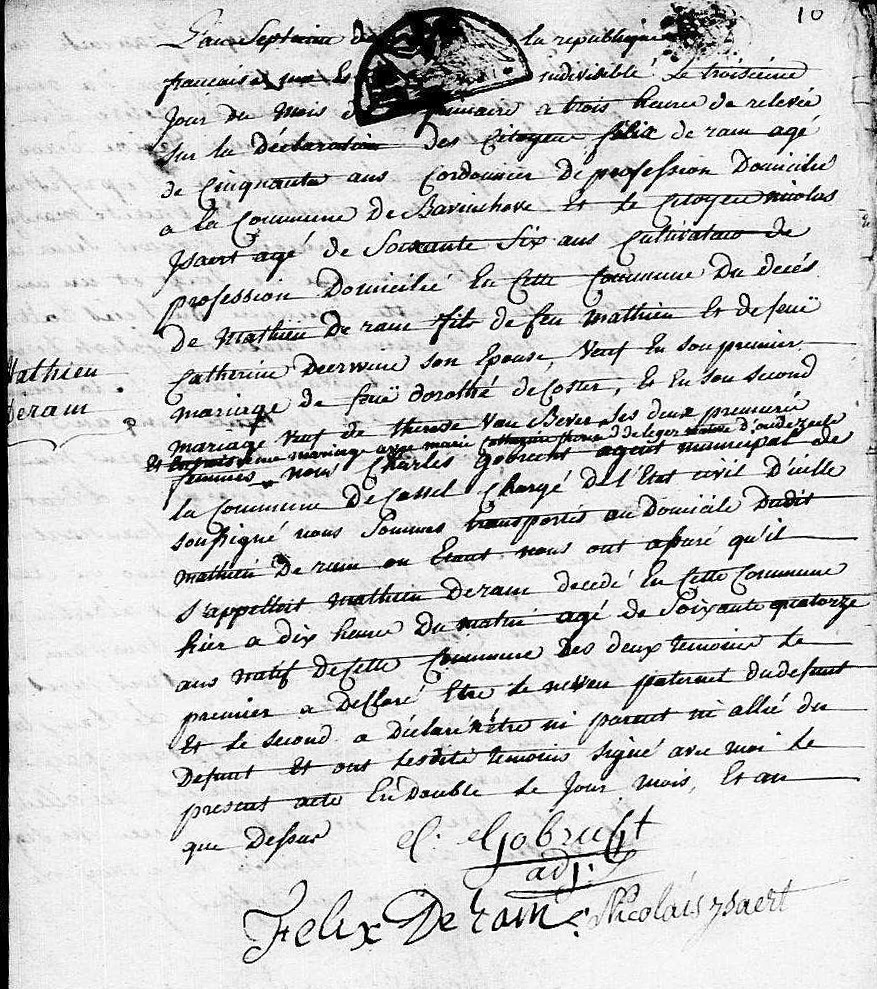 10
L'an Septieme de la republique
francaise une Et indivisible Le troisième
Jour du mois de frimaire a trois heure de relevée
sur la déclaration des Citoyens félix de ram agé
de Cinquante ans Cordonnier De profession Domicilié
a la Commune De Bavinchove Et le Citoyen nicolas
Jsaert agé de Soixante Six ans Cultivateur de
profession Domicilié En Cette Commune Du decés
De Mathieu De ram fils de feu mathieu Et de feuë
Catherine Deerwene son Epouse, Veuf En son premier
mariage de feuë dorothé de Coster, Et En son Second
mariage veuf de therese Van Bever, les deux premieres
Et En troisieme mariage avec marie Catherine deleger d'oudezeele
femmes nous Charles Gobrecht agent municipal de
la Commune De Cassel Chargé De l'Etat civil D'icelle
soussigné nous Sommes transportés au Domicile Dudit
mathieu De ram ou Etant nous ont assuré qu'il
S'appelloit mathieu Deram decedé En Cette Commune
hier a dix heure Du matin agé de Soixante quatorze
ans natif De Cette Commune Des deux temoins Le
premier a Declaré Etre Le neveu paternel du defunt
Et le second a Déclaré n'être ni parent ni allié du
Defunt Et ont lesdits temoins signé avec moi Le
present acte En Double le Jour mois, Et an
que Dessus
C. Gobrecht
adj.
Felix De ram
Nicolais ysaert
Mathieu
Deram